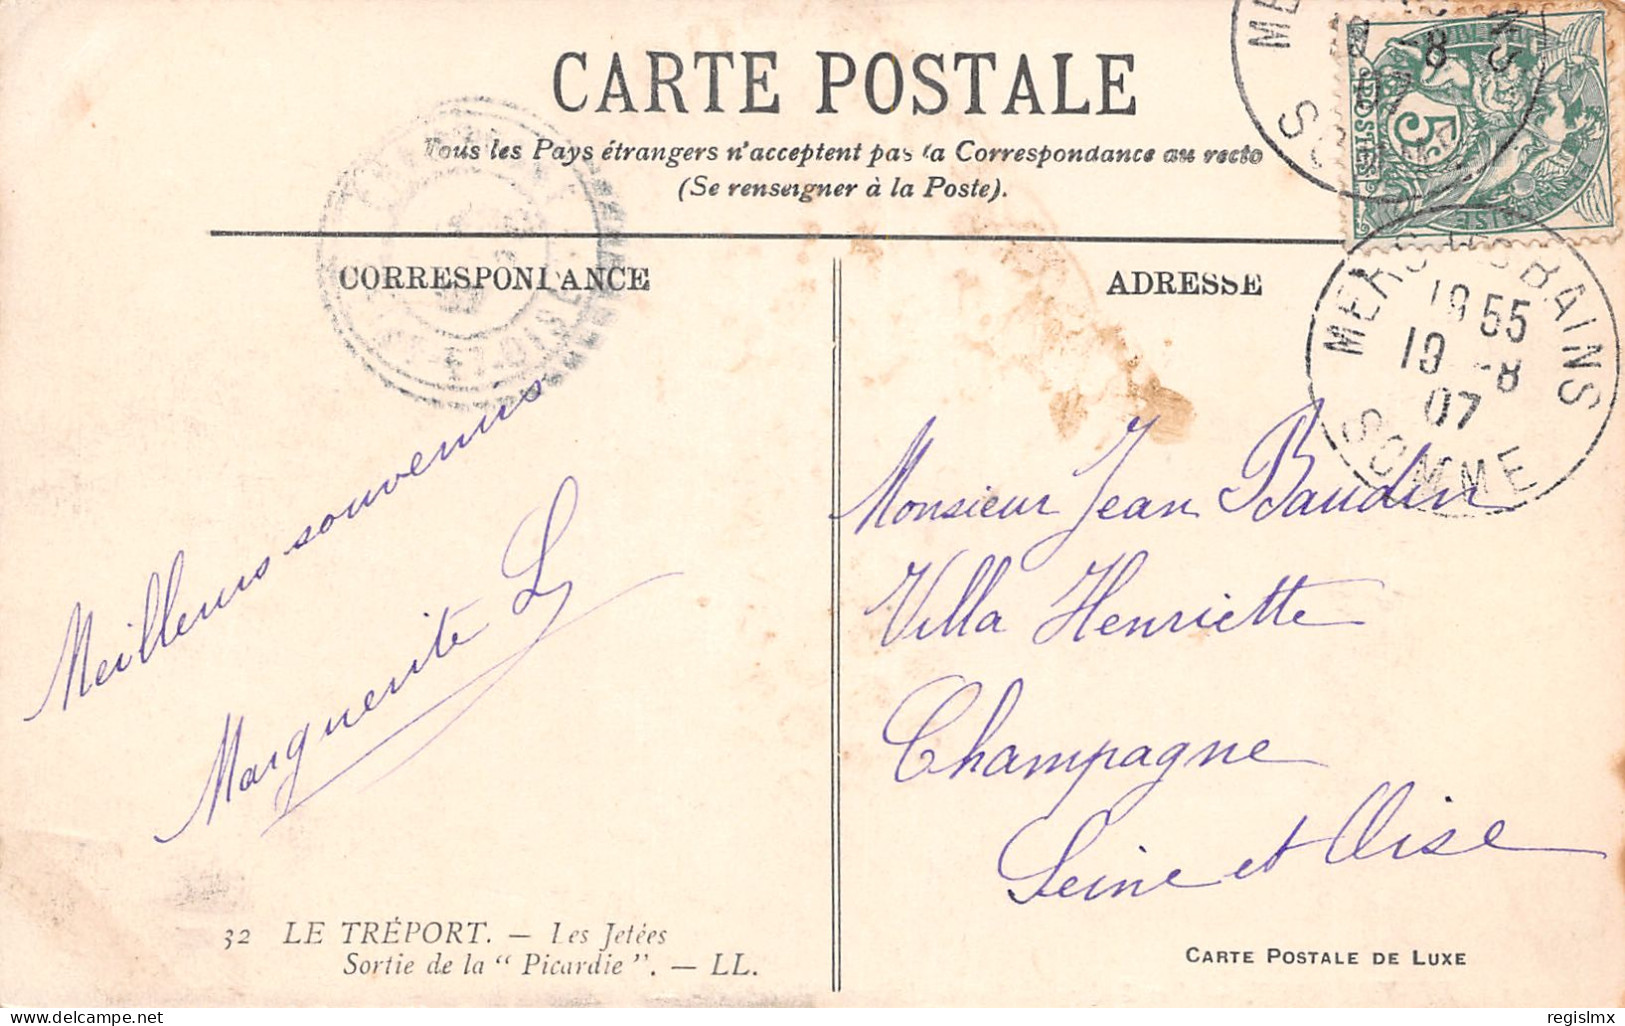 CARTE POSTALE
Tous les Pays étrangers n'acceptent pas la Correspondance au recto
(Se renseigner à la Poste).
CORRESPONDANCE
ADRESSE
5
POSTES
MERS LES BAINS
19 55
19 -8
07
SOMME
Meilleurs souvenirs
Marguerite L
Monsieur Jean Baudin
Villa Henriette
Champagne
Seine et Oise
32 LE TRÉPORT. — Les Jetées
Sortie de la “ Picardie ”. — LL.
CARTE POSTALE DE LUXE
delcampe.net
regislmx